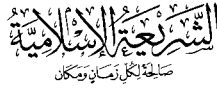 الشَّرِيعَةُ الإِسْلَامِيَّةُ
صَالِحَةٌ لِكُلِّ زَمَانٍ وَمَكَانٍ